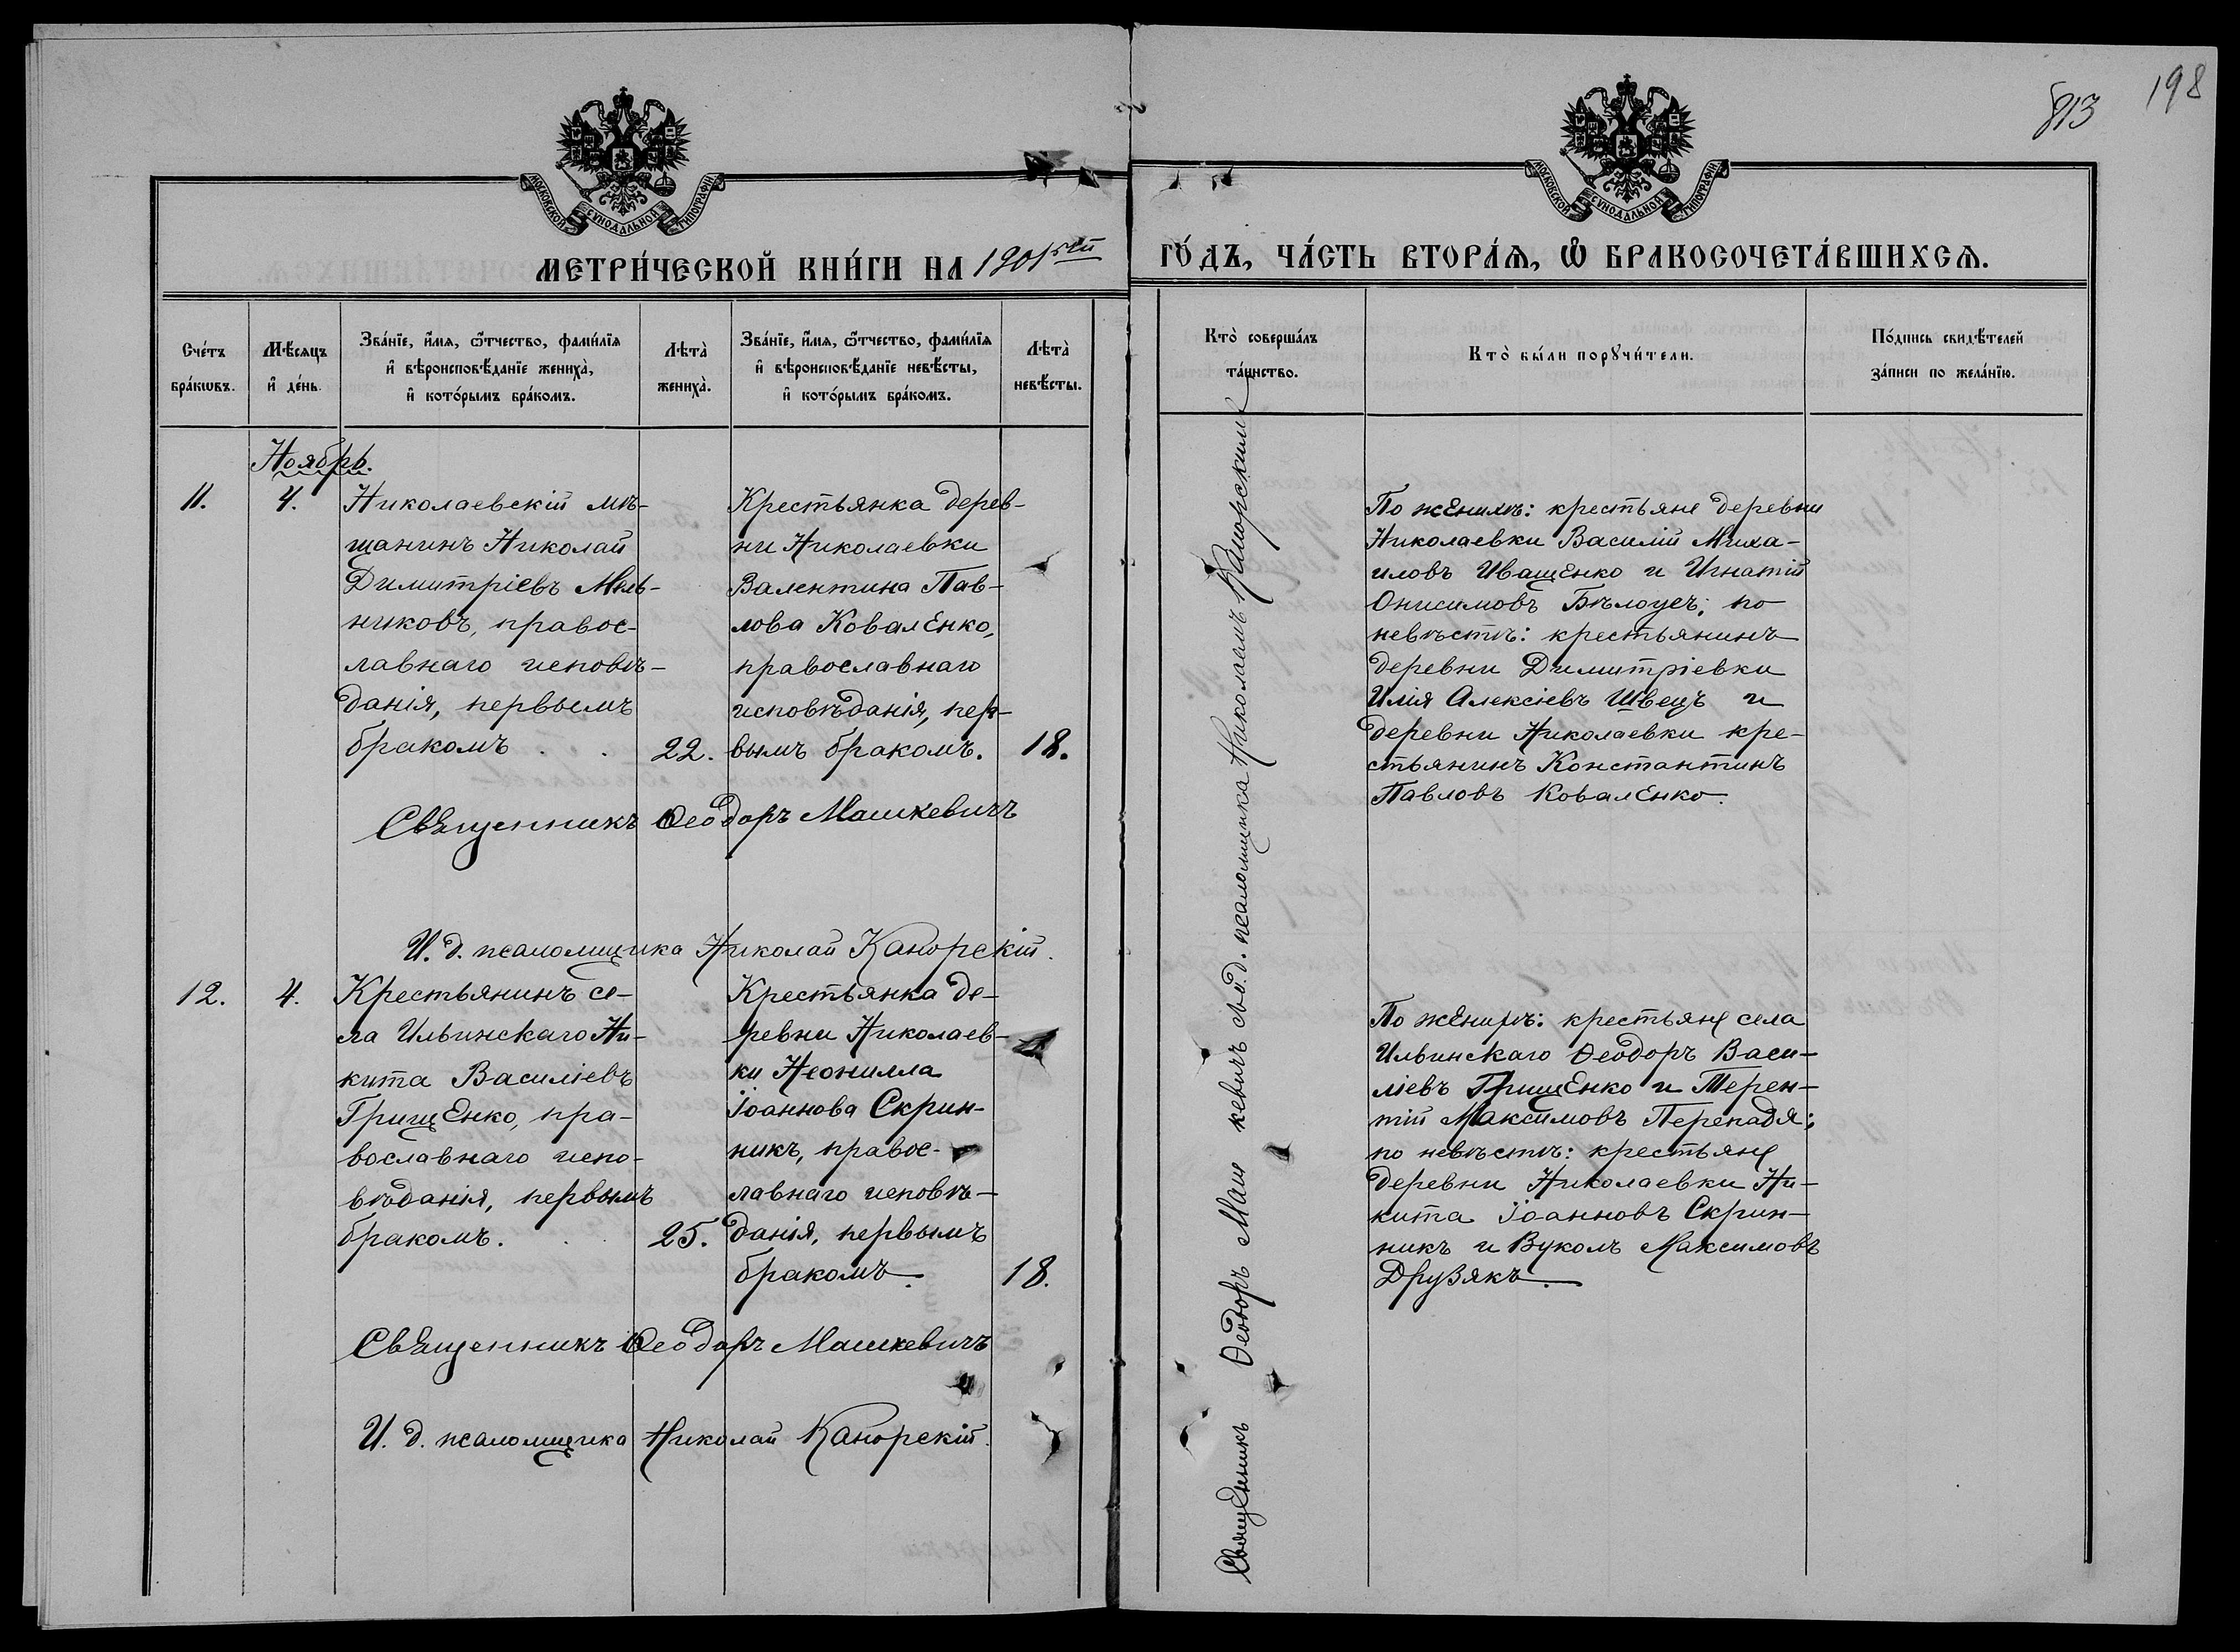 198
813
МОСКОВСКОЙ СѴНОДАЛЬНОЙ ТИПОГРАФІИ
МОСКОВСКОЙ СѴНОДАЛЬНОЙ ТИПОГРАФІИ
МЕТРИ́ЧЕСКОЙ КНИ́ГИ НА 1901кій
ГО́ДЪ, ЧА́СТЬ ВТОРА́Ѧ, Ѽ БРАКОСОЧЕТА́ВШИХСѦ.
Сче́тъ бра́кѡвъ.
Мѣ́сяцъ и҆ де́нь.
Зва́нїе, и҆́мѧ, ѻ҆́тчество, фами́лїѧ
и҆ вѣроисповѣ́данїе жениха̀,
и҆ кото́рымъ бра́комъ.
Лѣта̀ жениха̀.
Зва́нїе, и҆́мѧ, ѻ҆́тчество, фами́лїѧ
и҆ вѣроисповѣ́данїе невѣ́сты,
и҆ кото́рымъ бра́комъ.
Лѣта̀ невѣ́сты.
Кто̀ соверша́лъ
та́инство.
Кто̀ бы́ли порꙋчи́тели.
По́дпись свидѣ́телей
за́писи по жела́нїю.
Ноябрь.
11.
4.
Николаевскій мѣ-
щанинъ Николай
Димитріевъ Мель-
никовъ, правос-
лавнаго исповѣ-
данія, первымъ
бракомъ . .
22.
Крестьянка дерев-
ни Николаевки
Валентина Пав-
лова Коваленко,
православнаго
исповѣданія, пер-
вымъ бракомъ.
18.
По женихѣ: крестьяне деревни
Николаевки Василій Миха-
иловъ Иващенко и Игнатій
Онисимовъ Бѣлоусъ; по
невѣстѣ: крестьянинъ
деревни Димитріевки
Илія Алексіевъ Швецъ и
деревни Николаевки кре-
стьянинъ Константинъ
Павловъ Коваленко.
Священникъ Ѳеодоръ Машкевичъ
И. д. псаломщика Николай Канорскій.
12.
4.
Крестьянинъ се-
ла Ильинскаго Ни-
кита Василіевъ
Грищенко, пра-
вославнаго испо-
вѣданія, первымъ
бракомъ. . .
25.
Крестьянка де-
ревни Николаев-
ки Неонилла
Іоаннова Скрин-
никъ, правос-
лавнаго исповѣ-
данія, первымъ
бракомъ.
18.
По женихѣ: крестьяне села
Ильинскаго Ѳеодоръ Васи-
ліевъ Грищенко и Терен-
тій Максимовъ Перепадя;
по невѣстѣ: крестьяне
деревни Николаевки Ни-
кита Іоанновъ Скрин-
никъ и Вуколъ Максимовъ
Друзякъ.
Священникъ Ѳеодоръ Машкевичъ
И. д. псаломщика Николай Канорскій.
Священникъ Ѳеодоръ Машкевичъ съ и.д. псаломщика Николаемъ Канорскимъ